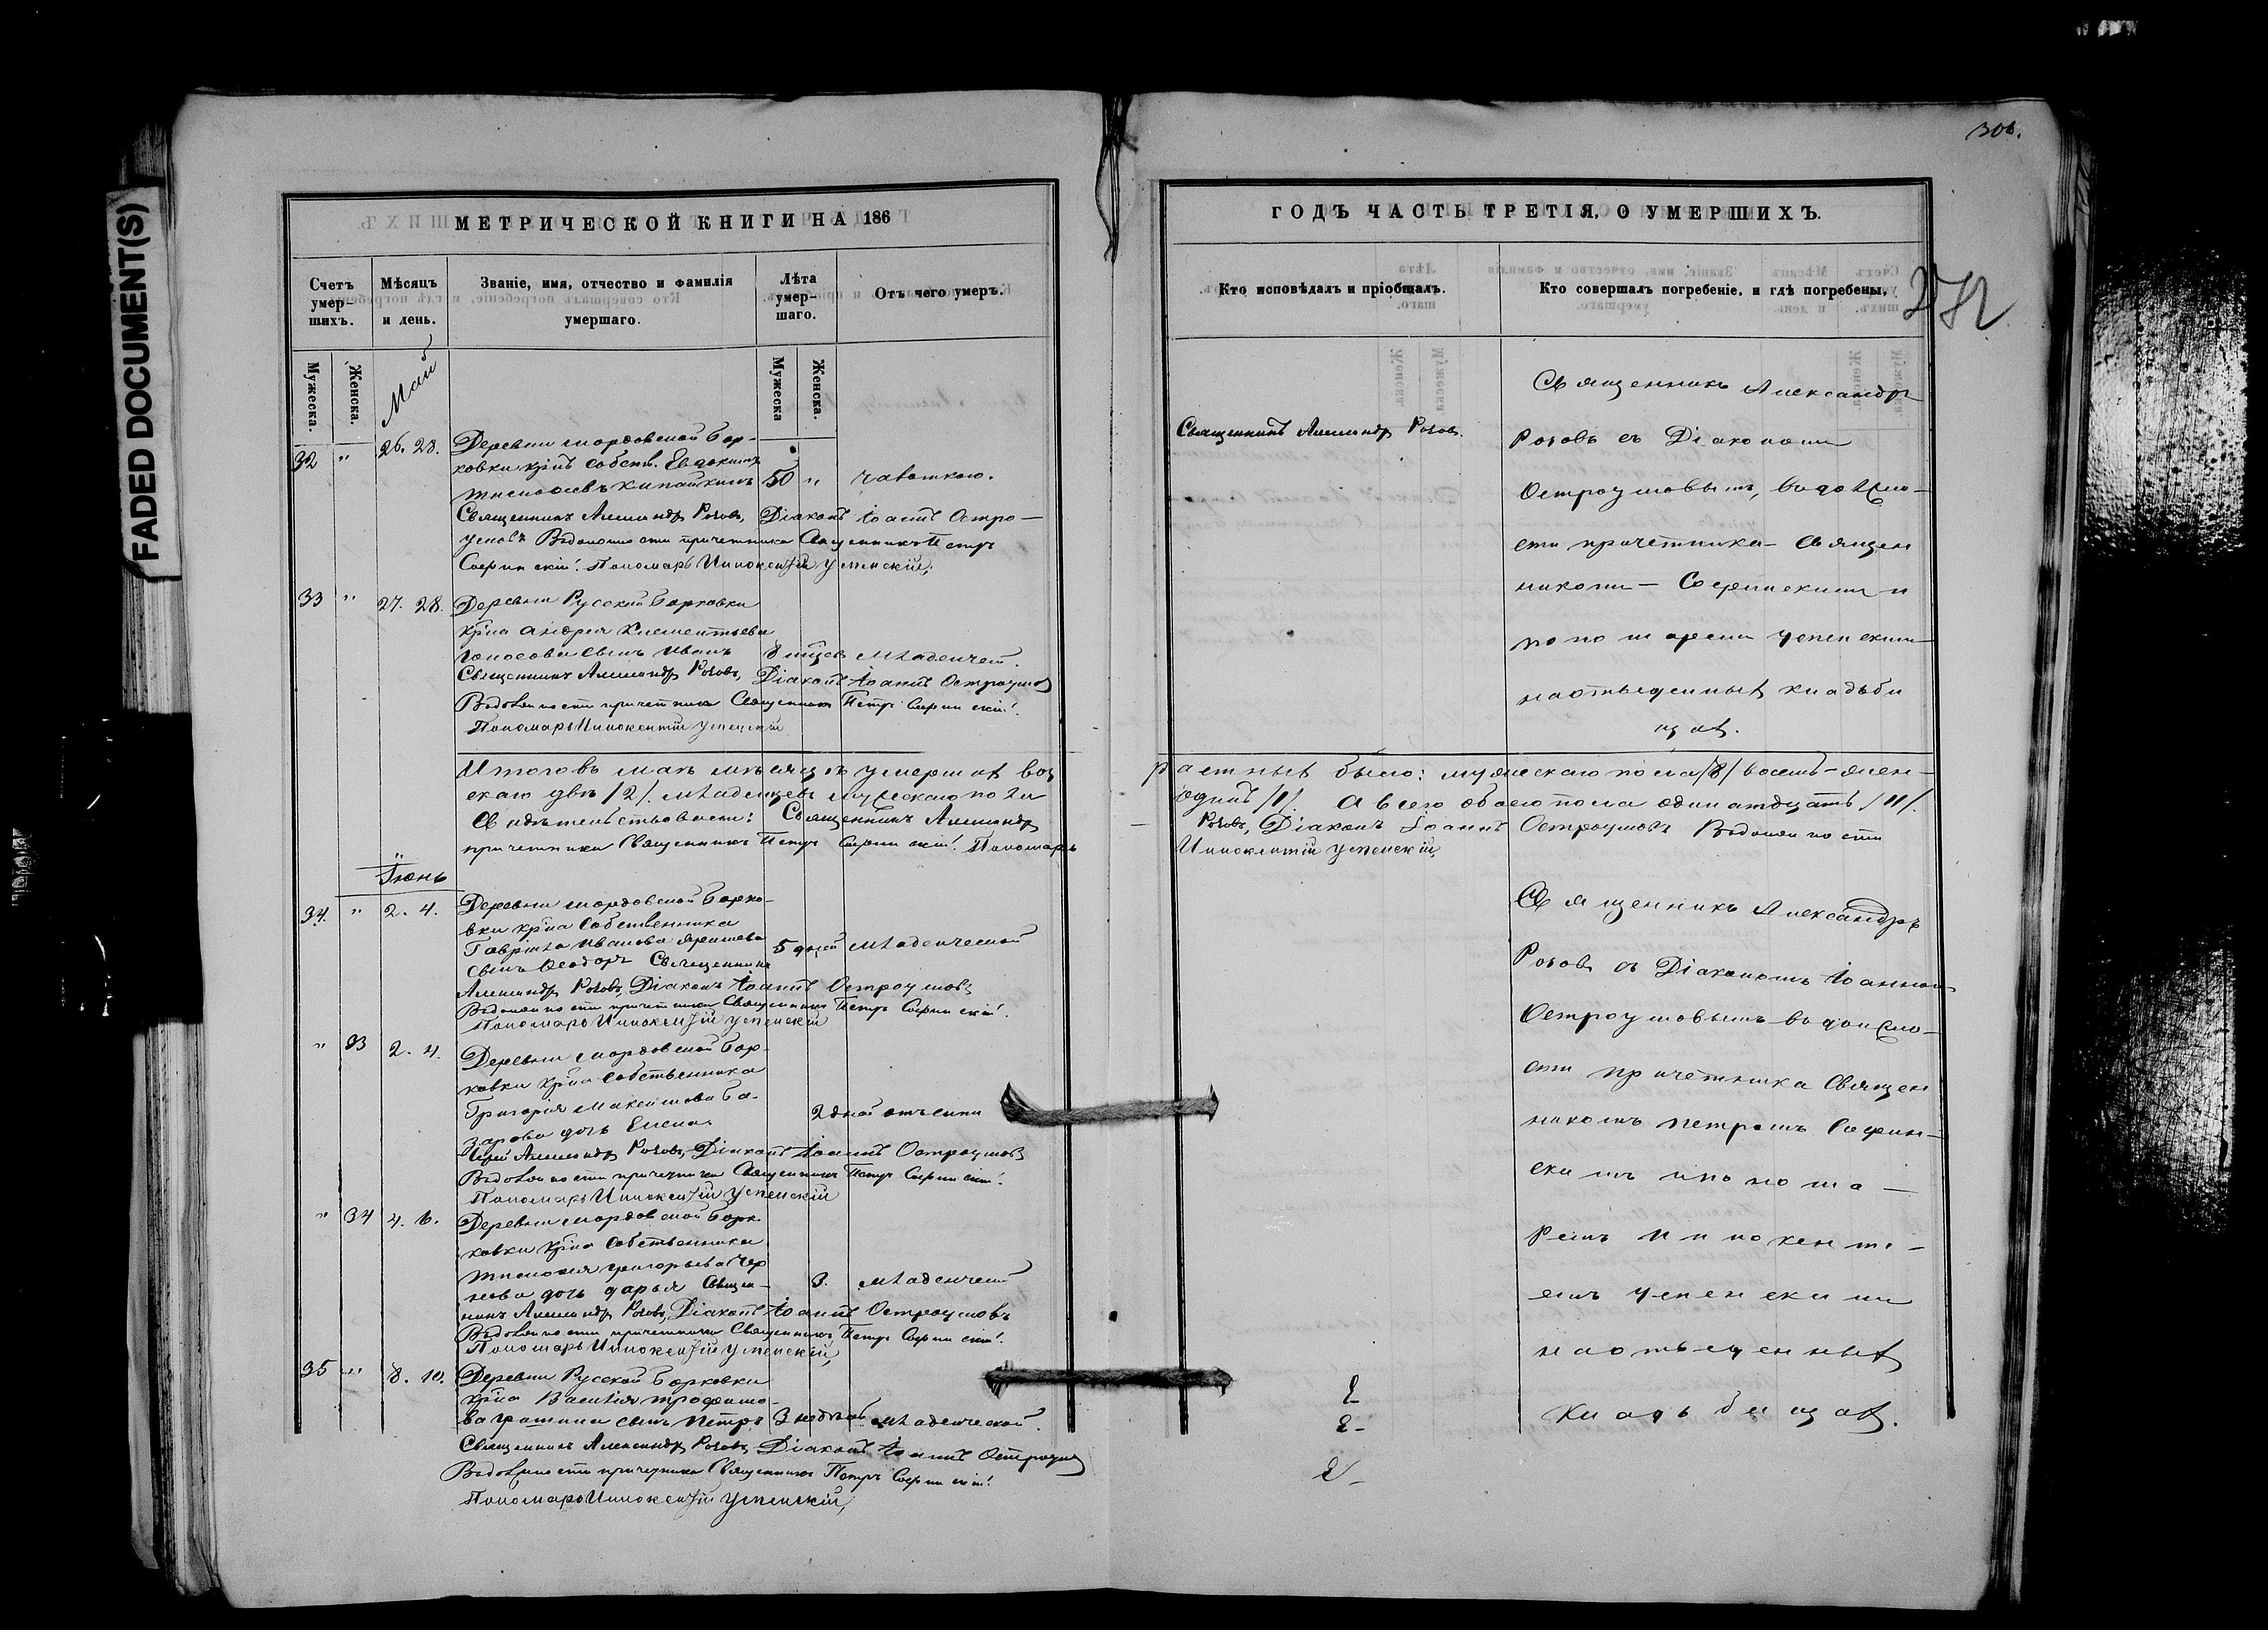 FADED DOCUMENT(S)
МЕТРИЧЕСКОЙ КНИГИ НА 186
Счетъ умер-шихъ.
Мѣсяцъ и день.
Званіе, имя, отчество и фамилія умершаго.
Лѣта умер-шаго.
Отъ чего умеръ.
Мужеска.
Женска.
Май
Мужеска
Женска.
32 " 26. 28. Деревни Мордовской Бор-
ковки крнъ собств. Евдокимъ
50 " чахоткою.
Священникъ Александръ Роговъ, Діаконъ Іоаннъ Остро-
умовъ В должности причетника Священникъ Петръ
Софинскій. Пономарь Иннокентій Успенскій,
33 " 27. 28. Деревни Русской Борковки
крна Андрея Климентьева
сынъ Иванъ 8 младенчес.
Священникъ Александръ Роговъ, Діаконъ Іоаннъ Остроумовъ
В должности причетника Священникъ Петръ Софинскій.
Пономарь Иннокентій Успенскій
Итого въ маѣ мѣсяцѣ умершихъ воз
скаго двѣ /2/. младенцевъ мужескаго пола
Свидѣтельствовали: Священникъ Александръ
причетника Священникъ Петръ Софинскій. Пономарь
Іюнь
34. " 2. 4. Деревни Мордовской Борко-
вки крна собственника
Гавріила Иванова
сынъ Ѳеодоръ 5 дней младенческой
Священникъ
Александръ Роговъ, Діаконъ Іоаннъ Остроумовъ
В должности причетника Священникъ Петръ Софинскій.
Пономарь Иннокентій Успенскій
" 33 2. 4. Деревни Мордовской Бор-
ковки крна собственника
Григорія Максимова Ба-
зарова дочь Елена. 2 дней
Іерей Александръ Роговъ, Діаконъ Іоаннъ Остроумовъ
В должности причетника Священникъ Петръ Софинскій.
Пономарь Иннокентій Успенскій
" 34 4. 6. Деревни Мордовской Борк
ковки крна собственника
Григорьева Чер
нова дочь Дарья 3. младенчес
Священ-
никъ Александръ Роговъ, Діаконъ Іоаннъ Остроумовъ
В должности причетника Священникъ Петръ Софинскій.
Пономарь Иннокентій Успенскій,
35 " 8. 10. Деревни Русской Борковки
крна Василія Трофимо-
ва сынъ Петръ 3 недѣль младенческой.
Священникъ Александръ Роговъ, Діаконъ Іоаннъ Остроумов
В должности причетника Священникъ Петръ Софинскій.
Пономарь Иннокентій Успенскій,
ГОДЪ ЧАСТЬ ТРЕТІЯ, О УМЕРШИХЪ.
Кто исповѣдалъ и пріобщалъ.
Кто совершалъ погребеніе, и гдѣ погребены.
272
Священникъ Александръ Роговъ.
Священникъ Александръ
Роговъ съ Діакономъ
Остроумовымъ, в должно-
сти причетника – Священ
никомъ – Софинскимъ и
пономаремъ Успенскимъ
на отведенномъ кладби
щѣ.
растныхъ было: мужескаго пола /8/ восемь – жен-
одинъ /1/. А всего обоего пола одинатдцать /11/.
Роговъ, Діаконъ Іоаннъ Остроумовъ В должности
Иннокентій Успенскій,
Священникъ Александръ
Роговъ съ Діакономъ Іоанном
Остроумовымъ в должно-
сти причетника Священ
никомъ Петромъ Софин-
скимъ и понома-
ремъ Иннокенті-
емъ Успенскимъ
на отведенномъ
кладбищѣ.